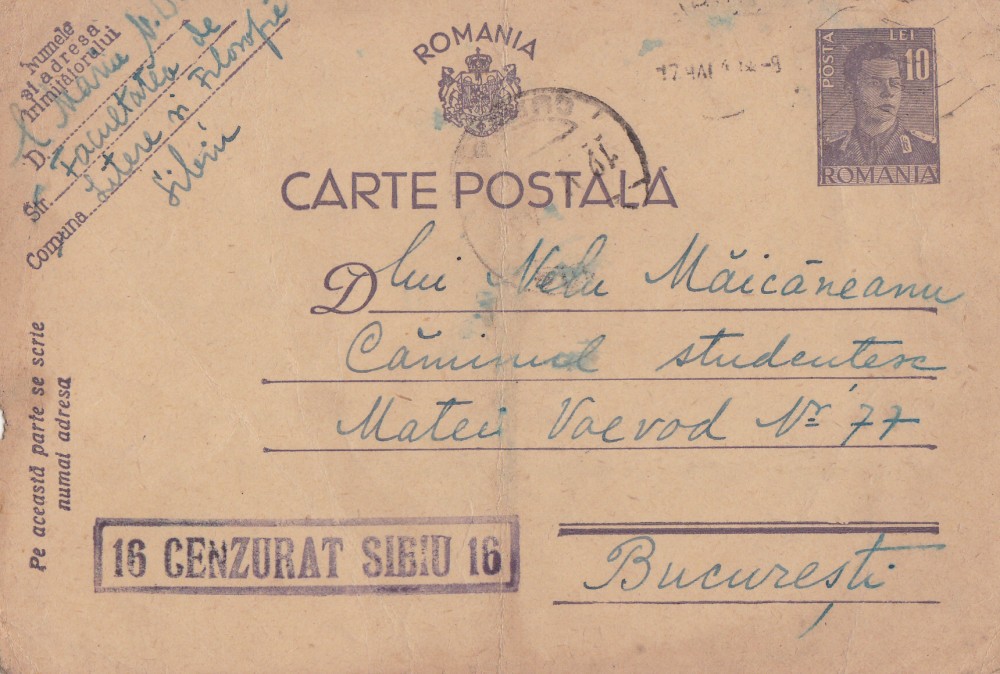 Numele
și adresa
trimițătorului
D Maria N.
Str. Facultatea de
Litere și Filosofie
Comuna Sibiu
ROMANIA
17 MAI
POSTA LEI 10
ROMANIA
12
CARTE POSTALĂ
Dlui Velu Măicăneanu
Căminul studentesc
Matei Voevod Nr 77
București
Pe această parte se scrie
numai adresa
16 CENZURAT SIBIU 16